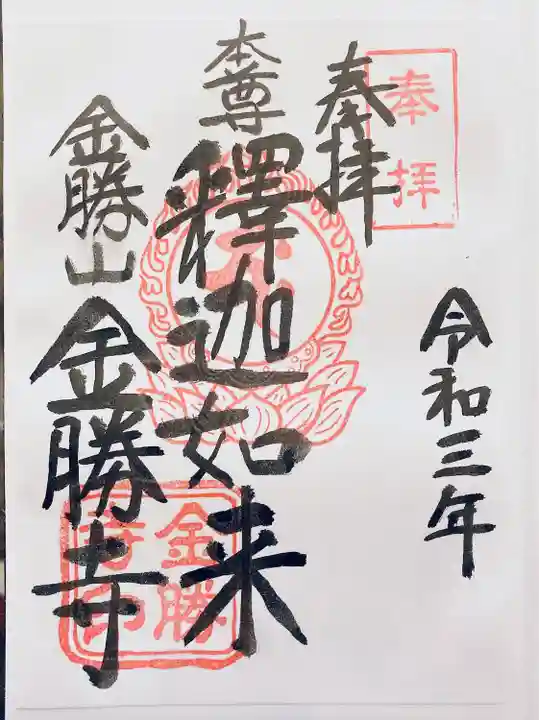 奉拝
奉拝
令和三年
本尊
釋迦如来
金勝山
金勝寺
金勝
寺印